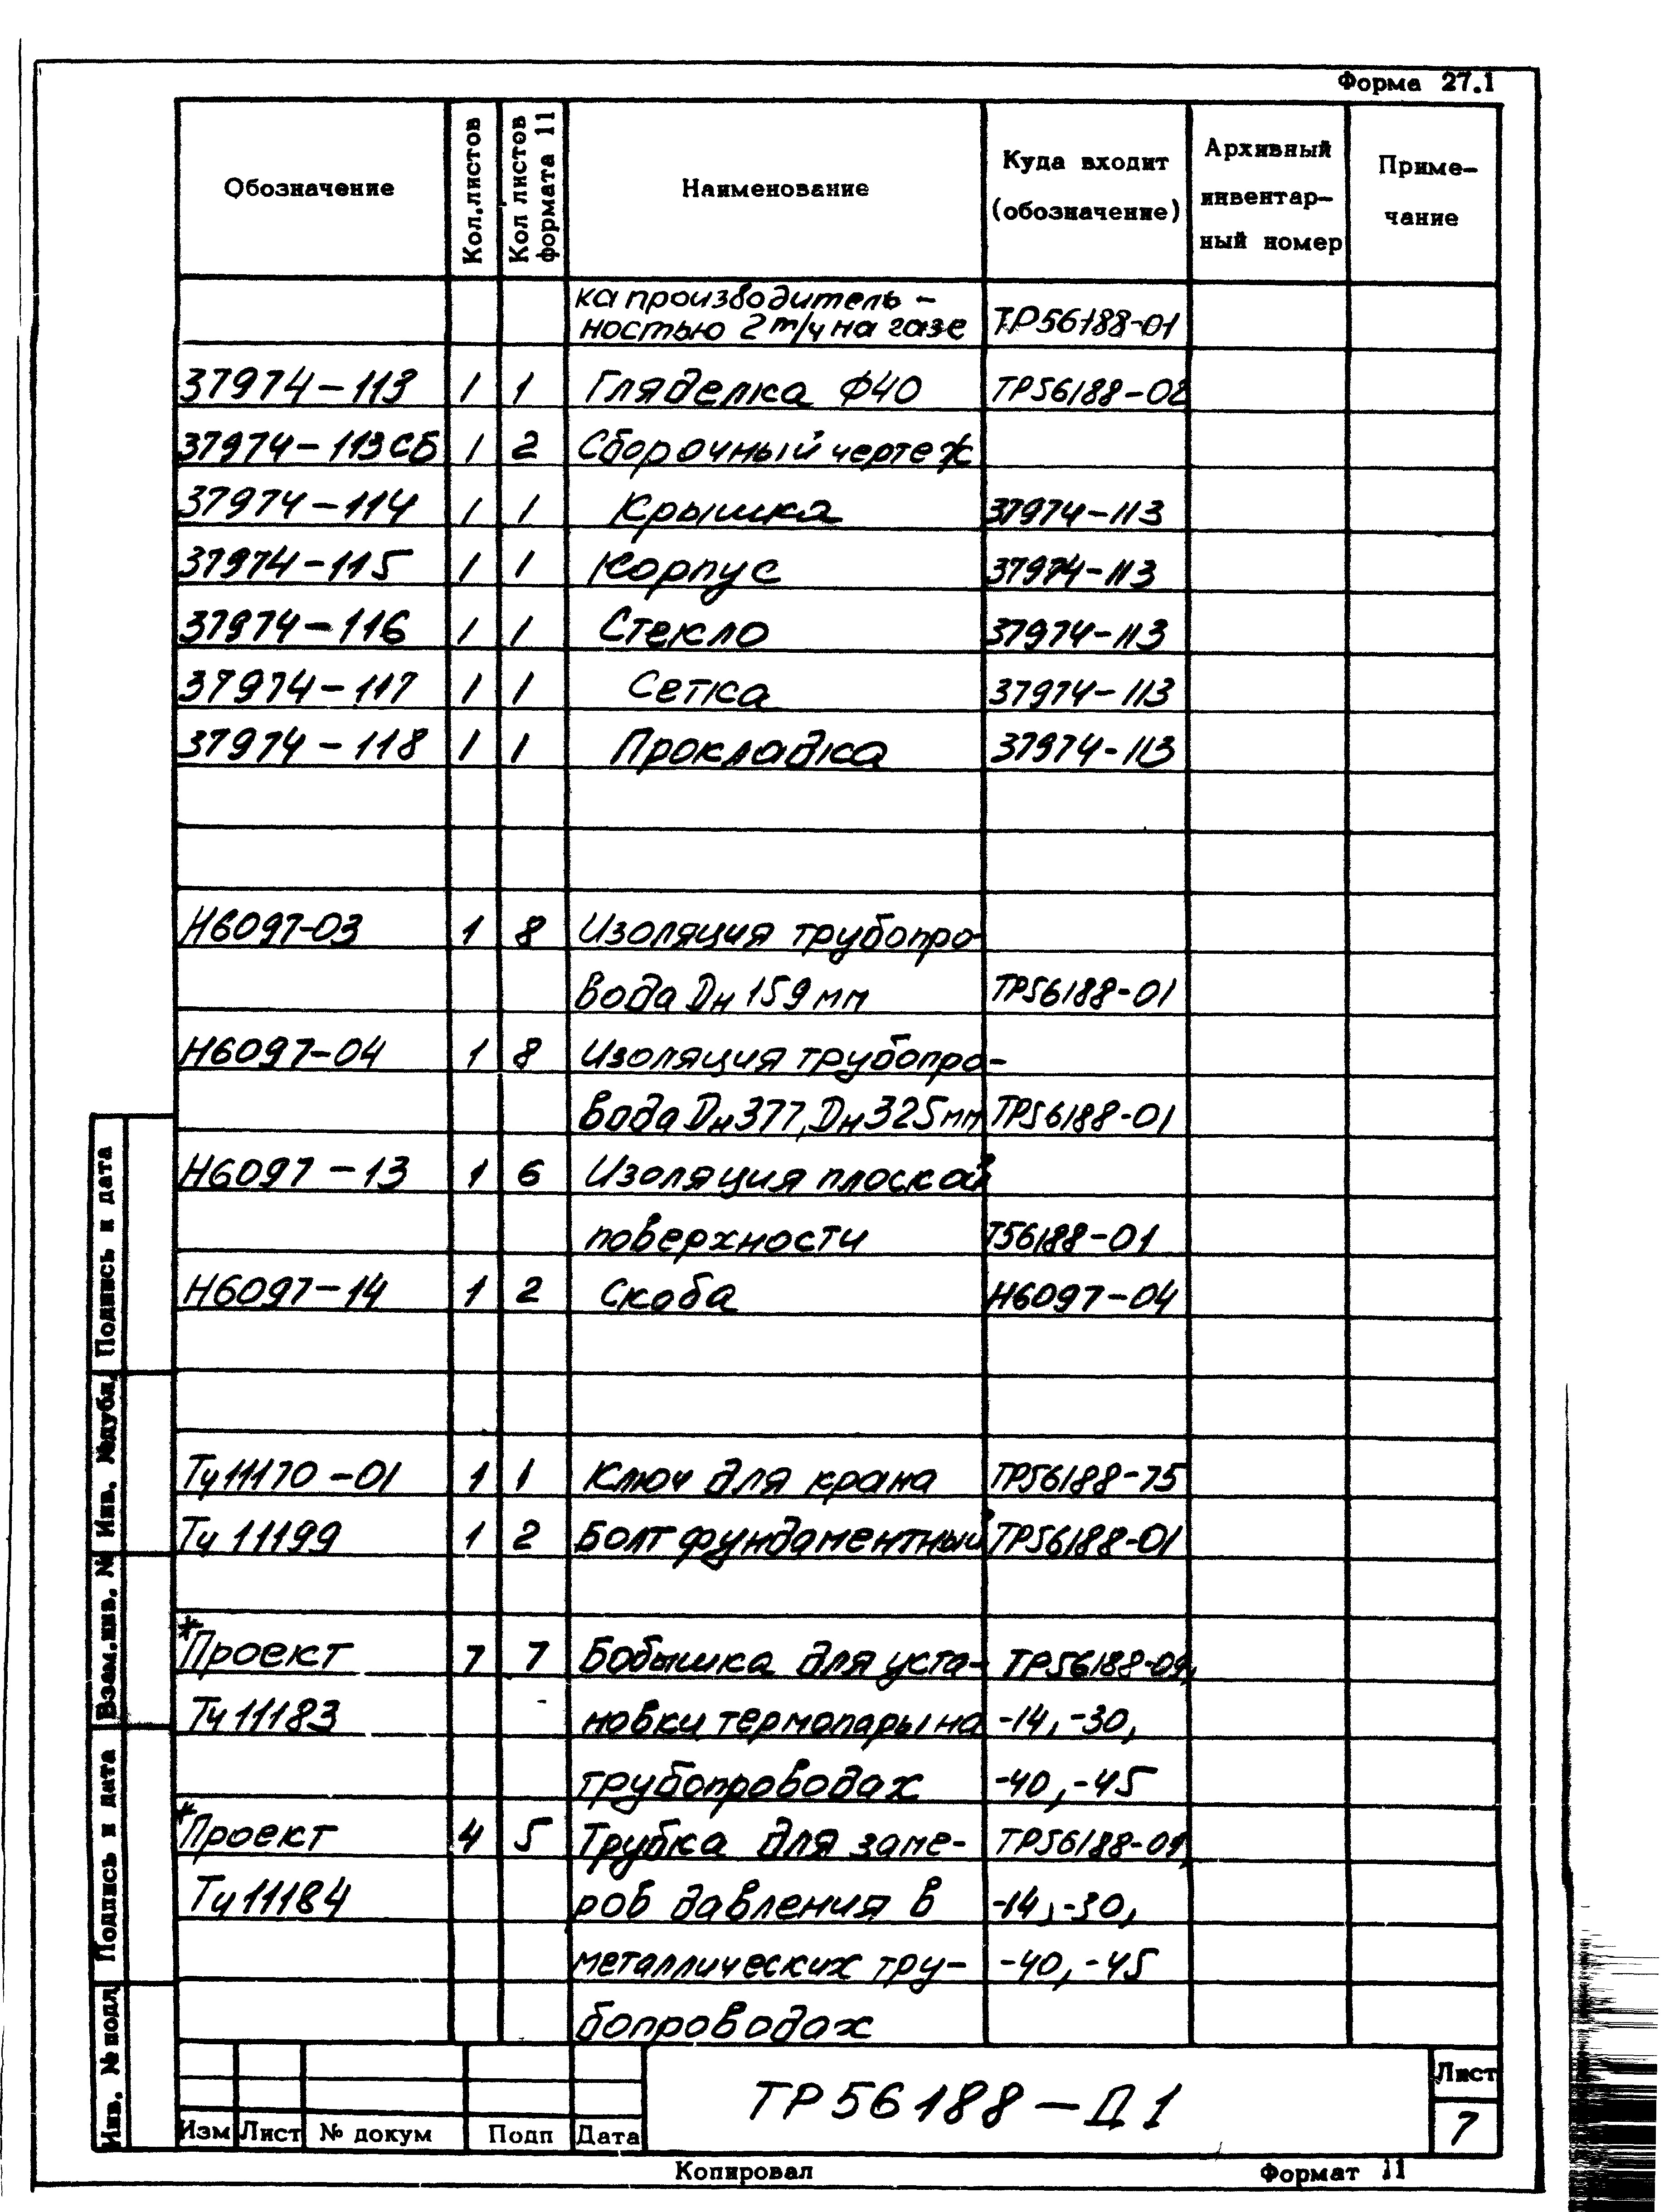 Форма 27.1
Обозначение Кол.листов Кол листов формата 11 Наименование Куда входит (обозначение) Архивный инвентар-ный номер Приме-чание
ка производитель-
ностью 2 т/ч на газе ТР56188-01
37974-113 1 1 Гляделка Ф40 ТР56188-02
37974-113СБ 1 2 Сборочный чертеж
37974-114 1 1 Крышка 37974-113
37974-115 1 1 Корпус 37974-113
37974-116 1 1 Стекло 37974-113
37974-117 1 1 Сетка 37974-113
37974-118 1 1 Прокладка 37974-113
Н6097-03 1 8 Изоляция трубопро-
вода Dн 159 мм ТР56188-01
Н6097-04 1 8 Изоляция трубопро-
вода Dн377, Dн325мм ТР56188-01
Н6097-13 1 6 Изоляция плоской
поверхности Т56188-01
Н6097-14 1 2 Скоба Н6097-04
Тч11170-01 1 1 Ключ для крана ТР56188-75
Тч 11199 1 2 Болт фундаментный ТР56188-01
*Проект 7 7 Бобышка для уста- ТР56188-09,
Тч11183 новки термопары на -14, -30,
трубопроводах -40, -45
*Проект 4 5 Трубка для заме- ТР56188-09,
Тч11184 ров давления в -14, -30,
металлических тру- -40, -45
бопроводах
Инв. № подл Подпись и дата Взам.инв. № Инв. №дубл. Подпись и дата
Изм Лист № докум Подп Дата
ТР56188-Д1
Лист
7
Копировал Формат 11